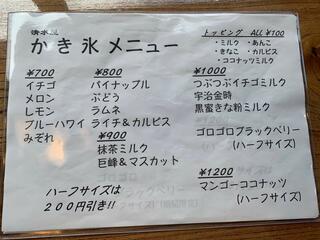 かき氷メニュー
トッピング ALL ¥100
・ミルク ・あんこ
・きなこ ・カルピス
・ココナッツミルク
¥700
イチゴ
メロン
レモン
ブルーハワイ
みぞれ
¥800
パイナップル
ぶどう
ラムネ
ライチ&カルピス
¥900
抹茶ミルク
巨峰&マスカット
¥1000
つぶつぶイチゴミルク
宇治金時
黒蜜きな粉ミルク
ゴロゴロブラックベリー
(ハーフサイズ)
¥1200
マンゴーココナッツ
(ハーフサイズ)
ハーフサイズは
200円引き!!